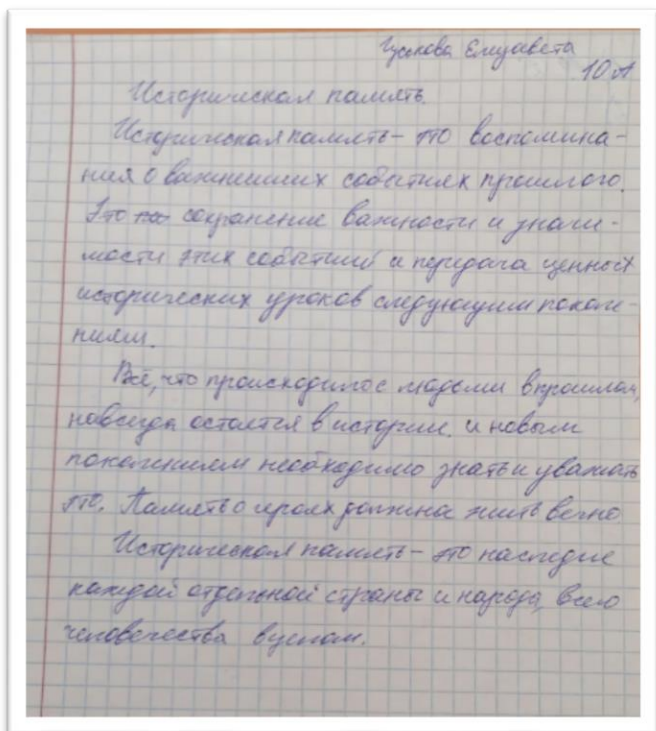 Гуськова Елизавета
10 А
Историческая память.
Историческая память – это воспомина-
ния о важнейших событиях прошлого.
Это сохранение важности и значи-
мости этих событий и передача ценных
исторических уроков следующим поколе-
ниям.
Всё, что происходило с людьми в прошлом,
навсегда остается в истории. и новым
поколениям необходимо знать и уважать
это. Память о героях должна жить вечно
Историческая память – это наследие
каждой отдельной страны и народа, всего
человечества в целом.